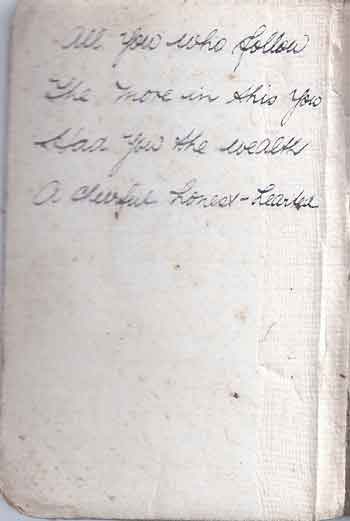 All You who follow
The more in this You
Had You the wealth
A cheerful honest-hearted